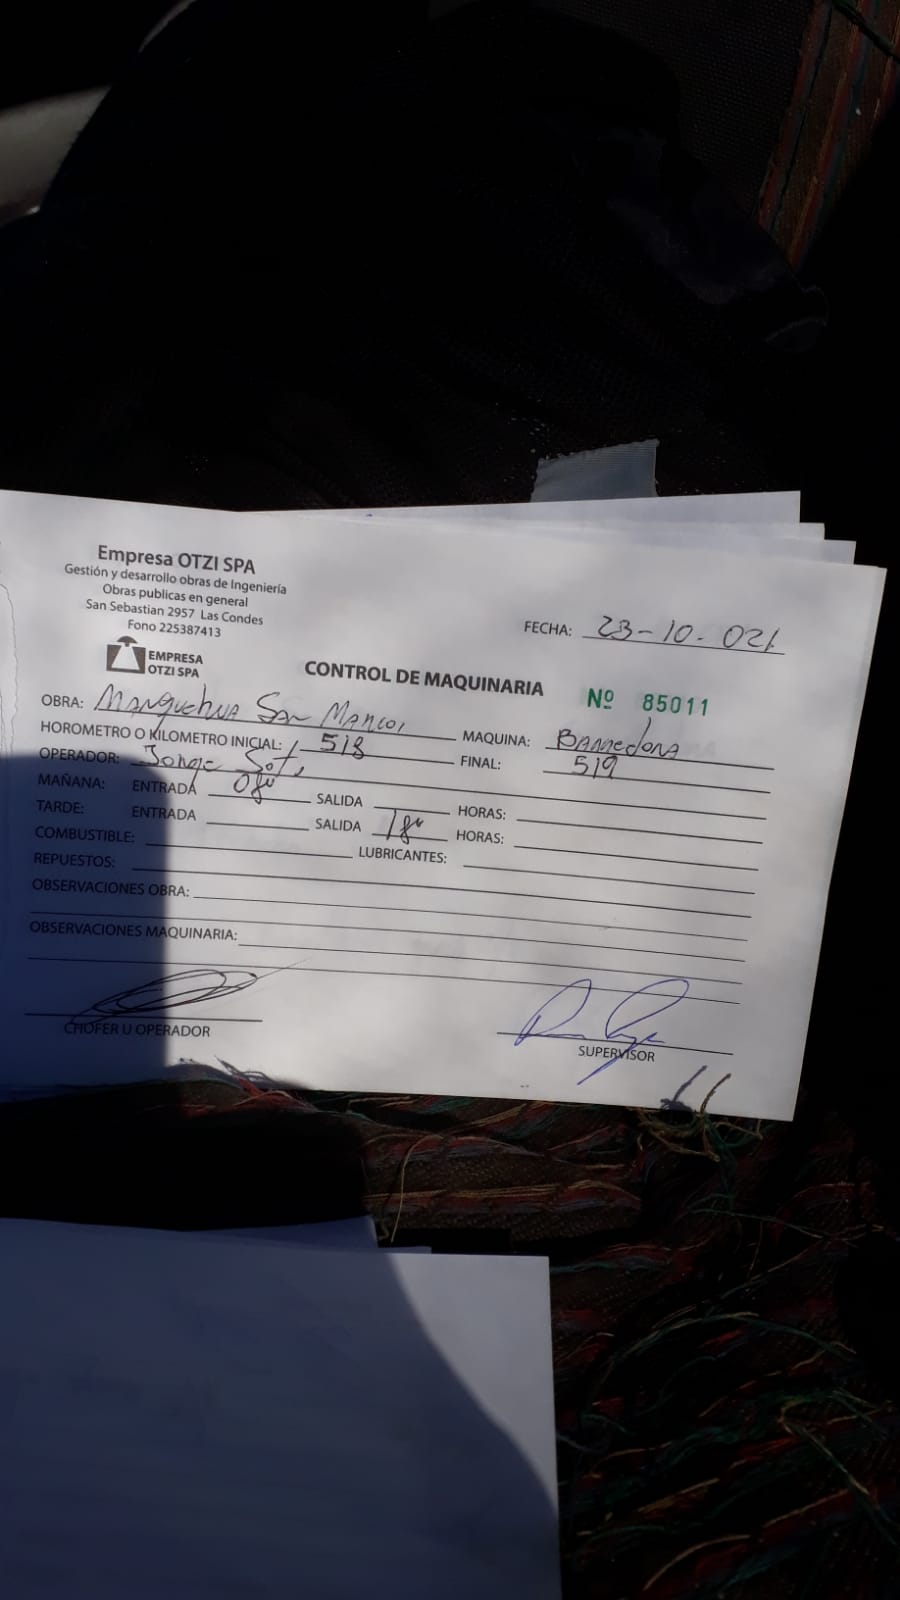 Empresa OTZI SPA
Gestión y desarrollo obras de Ingeniería
Obras publicas en general
San Sebastian 2957 Las Condes
Fono 225387413
EMPRESA
OTZI SPA
FECHA: 23-10-021
CONTROL DE MAQUINARIA
Nº 85011
OBRA: Manquehua San Marcos
MAQUINA: Barredora
HOROMETRO O KILOMETRO INICIAL: 518
FINAL: 519
OPERADOR: Jorge Soto
MAÑANA: ENTRADA 08 SALIDA HORAS:
TARDE: ENTRADA SALIDA 18 HORAS:
COMBUSTIBLE: LUBRICANTES:
REPUESTOS:
OBSERVACIONES OBRA:
OBSERVACIONES MAQUINARIA:
CHOFER U OPERADOR
SUPERVISOR